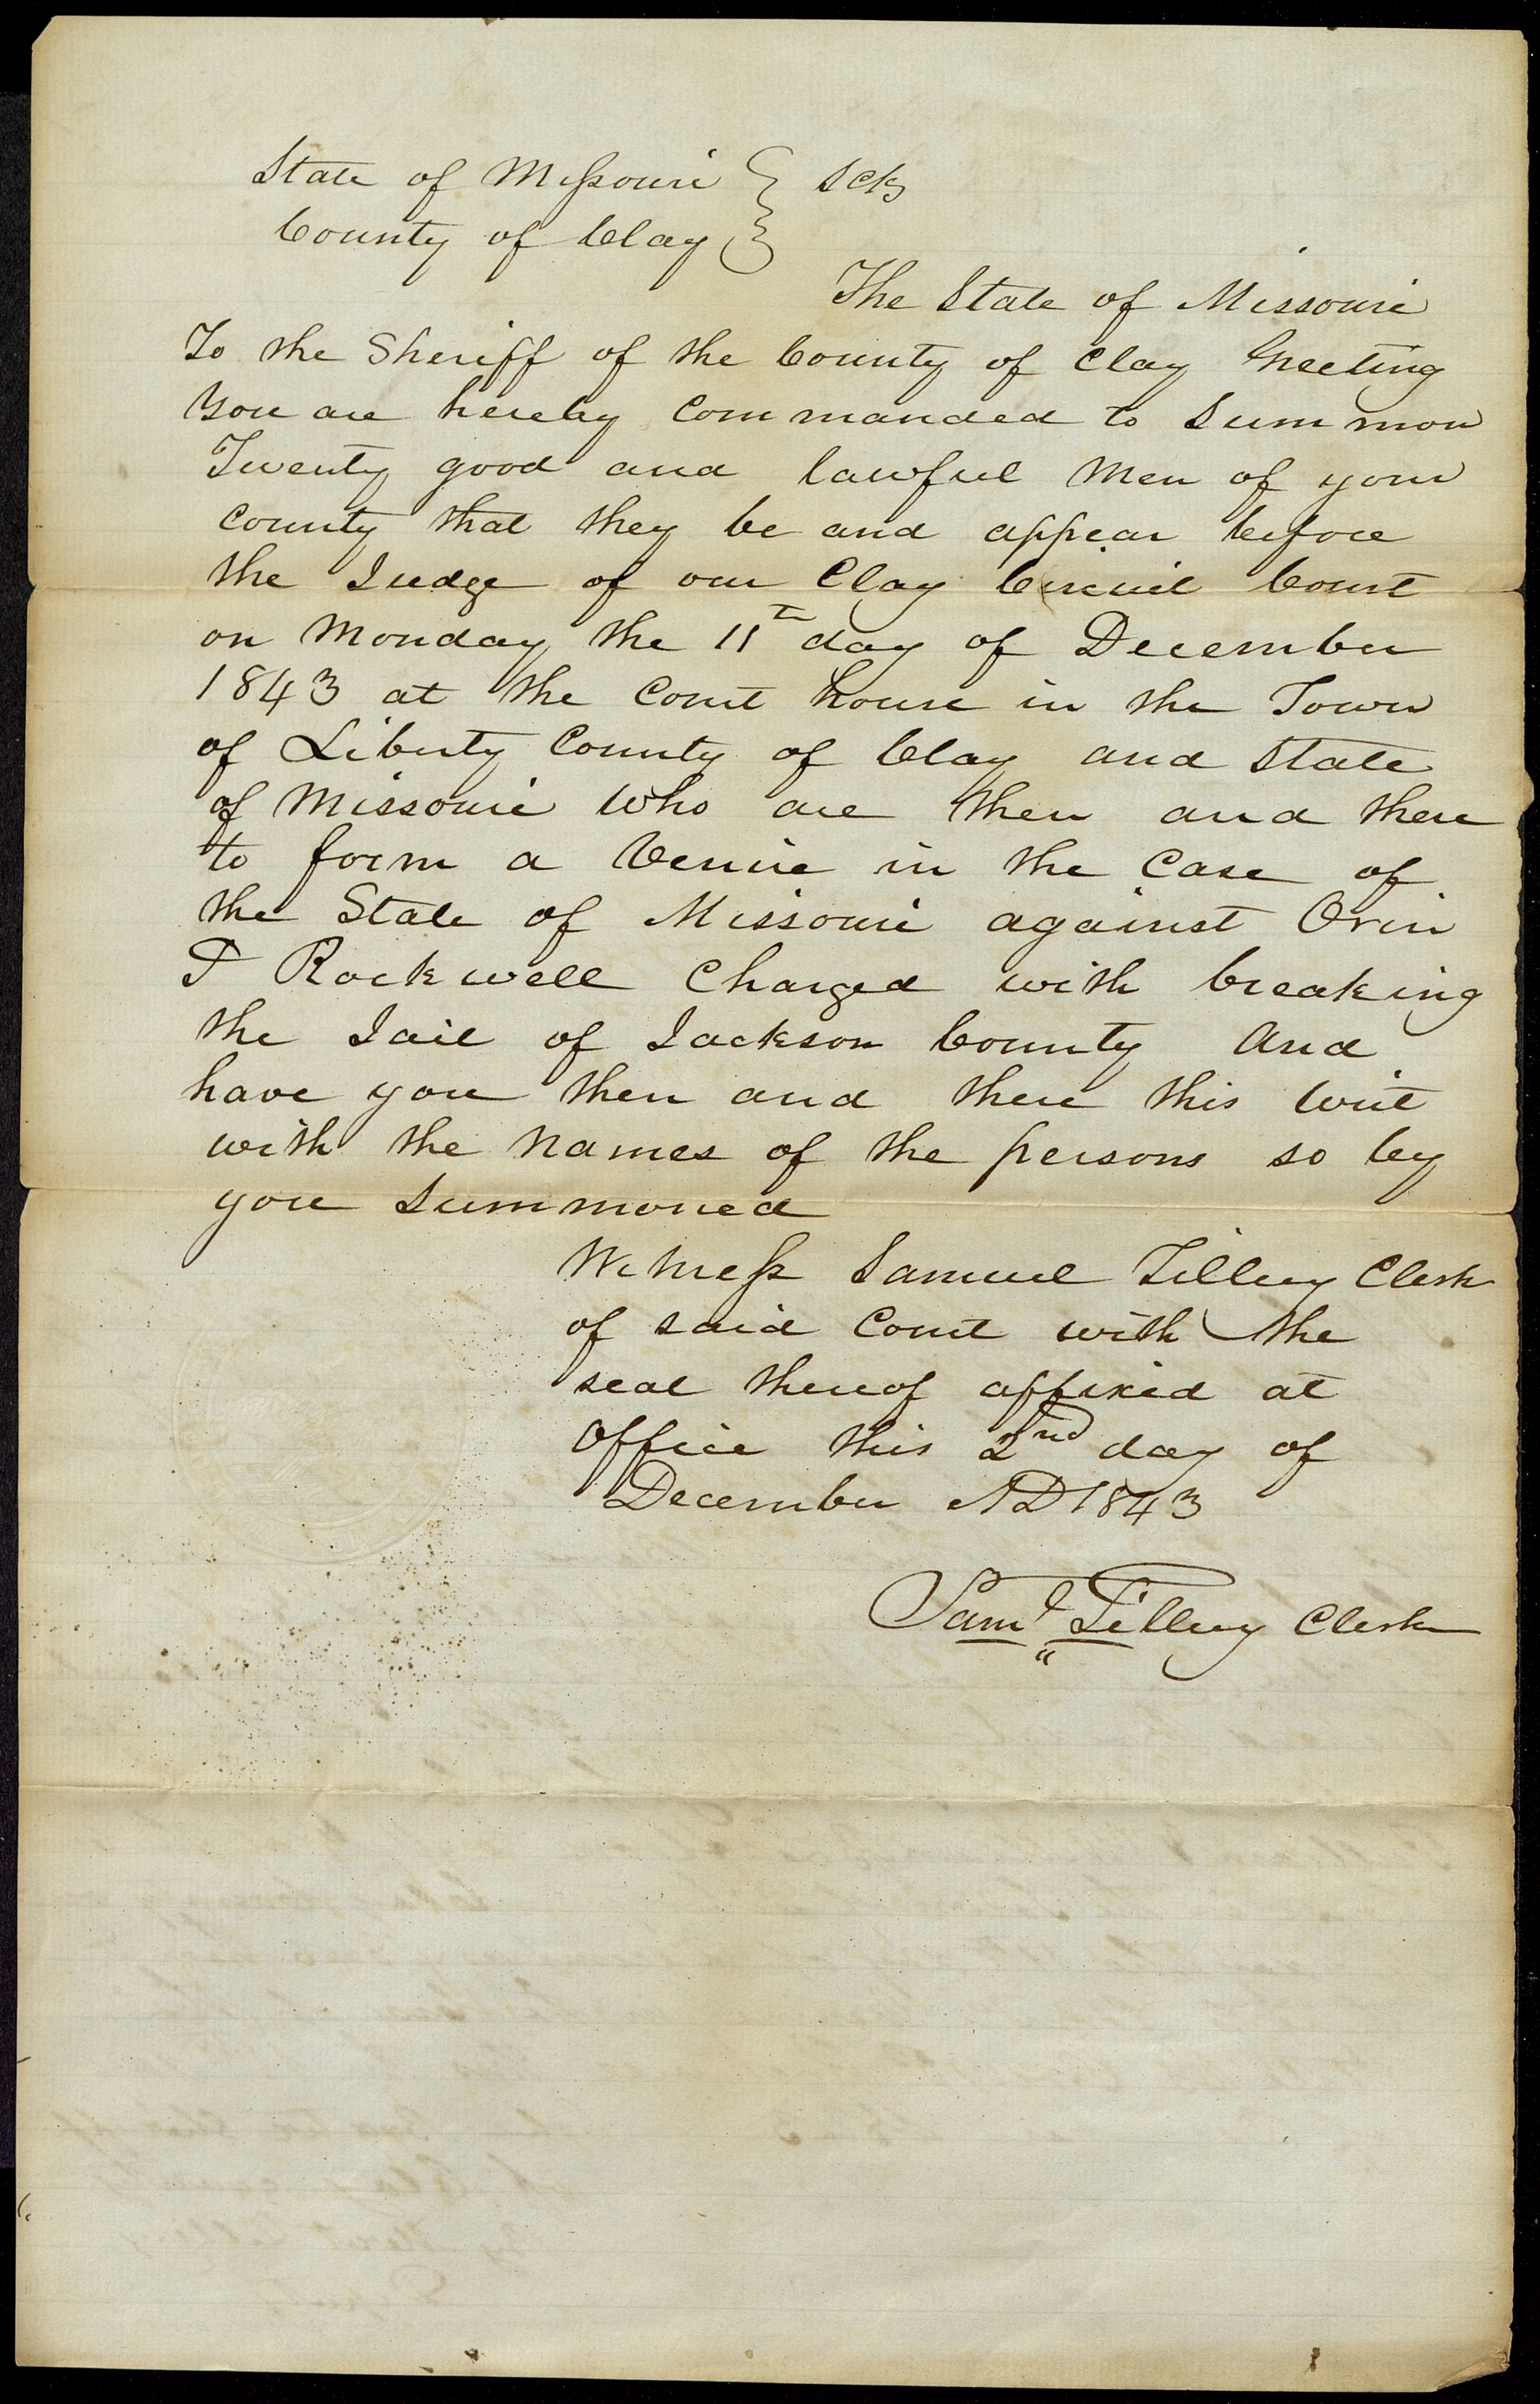 State of Missouri } Sct
County of Clay }
The State of Missouri
To the Sheriff of the County of Clay Greeting
You are hereby Commanded to Summon
Twenty good and lawful Men of your
County that they be and appear before
the Judge of our Clay Circuit Court
on Monday the 11th day of December
1843 at the Court house in the Town
of Liberty County of Clay and State
of Missouri Who are then and there
to form a Venire in the Case of
the State of Missouri against Orin
P Rockwell Charged with breaking
the Jail of Jackson County And
have you then and there this Writ
with the Names of the persons so by
you Summoned
Witness Samuel Tillery Clerk
of said Court with the
seal thereof affixed at
Office this 2nd day of
December AD 1843
Saml Tillery Clerk